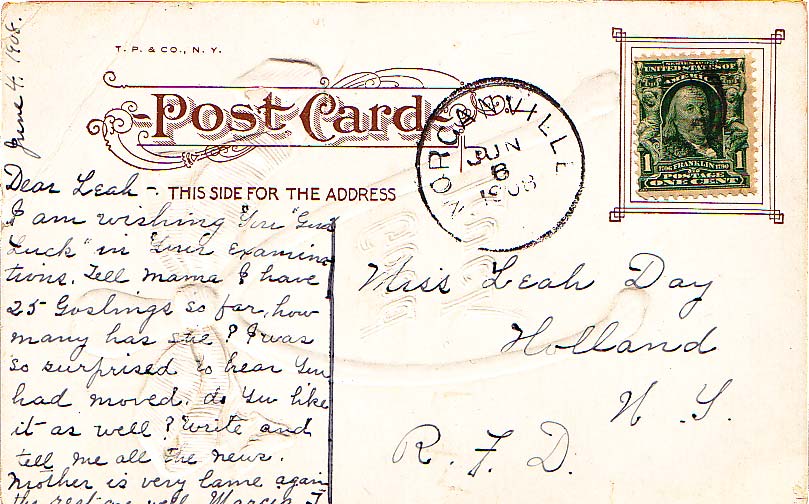 June 4, 1908.
T. P. & CO., N. Y.
Post Card
THIS SIDE FOR THE ADDRESS
MORGANVILLE
JUN
6
1908
N.Y.
UNITED STATES OF
AMERICA
1 1706 FRANKLIN 1790 1
POSTAGE
ONE CENT
Dear Leah -.
I am wishing You "Good
Luck" in Your examina
tions. Tell Mama I have
25 Goslings so far, how
many has she? I was
so surprised to hear You
had moved. do You like
it as well? Write and
tell me all the news.
Mother is very lame again
the rest are well.
Miss Leah Day
Holland
N. Y.
R. F. D.